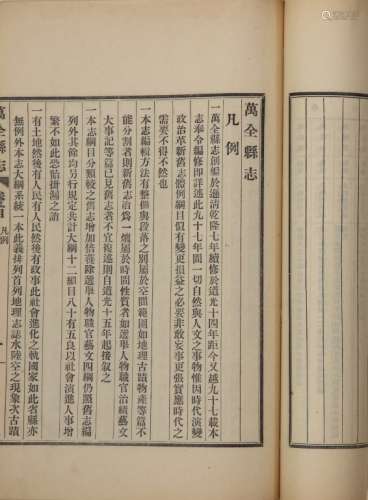 萬全縣志
凡例
一萬全縣志創編於遜清乾隆七年續修於道光十四年距今又越九十七載本
志奉令編修即述此九十七年間一切自然與人文之事物惟因時代演變
政治革新舊志體例綱目似有變更損益之必要非敢妄事更張實應時代之
需要不得不然也
一本志編輯方法有整個與段落之別屬於空間範圍如地理古蹟物產等篇不
能分割者則新舊志渻爲一爐屬於時間性質者如選舉人物職官治績藝文
大事記等篇已見舊志者不宜複述則自道光十五年起接叙之
一本志綱目分類較之舊志增加倍蓰除選舉人物職官藝文四綱仍照舊志編
列外其餘均另行規定共計大綱十二細目八十有五良以社會演進人事增
繁不如此恐貽掛漏之誚
一有土地然後有人民有人民然後有政事此社會進化之軌國家如此省縣亦
無例外本志大綱系統一本此義排列首列地理志誌水陸空之現象次古蹟
萬全縣志
卷首
凡例